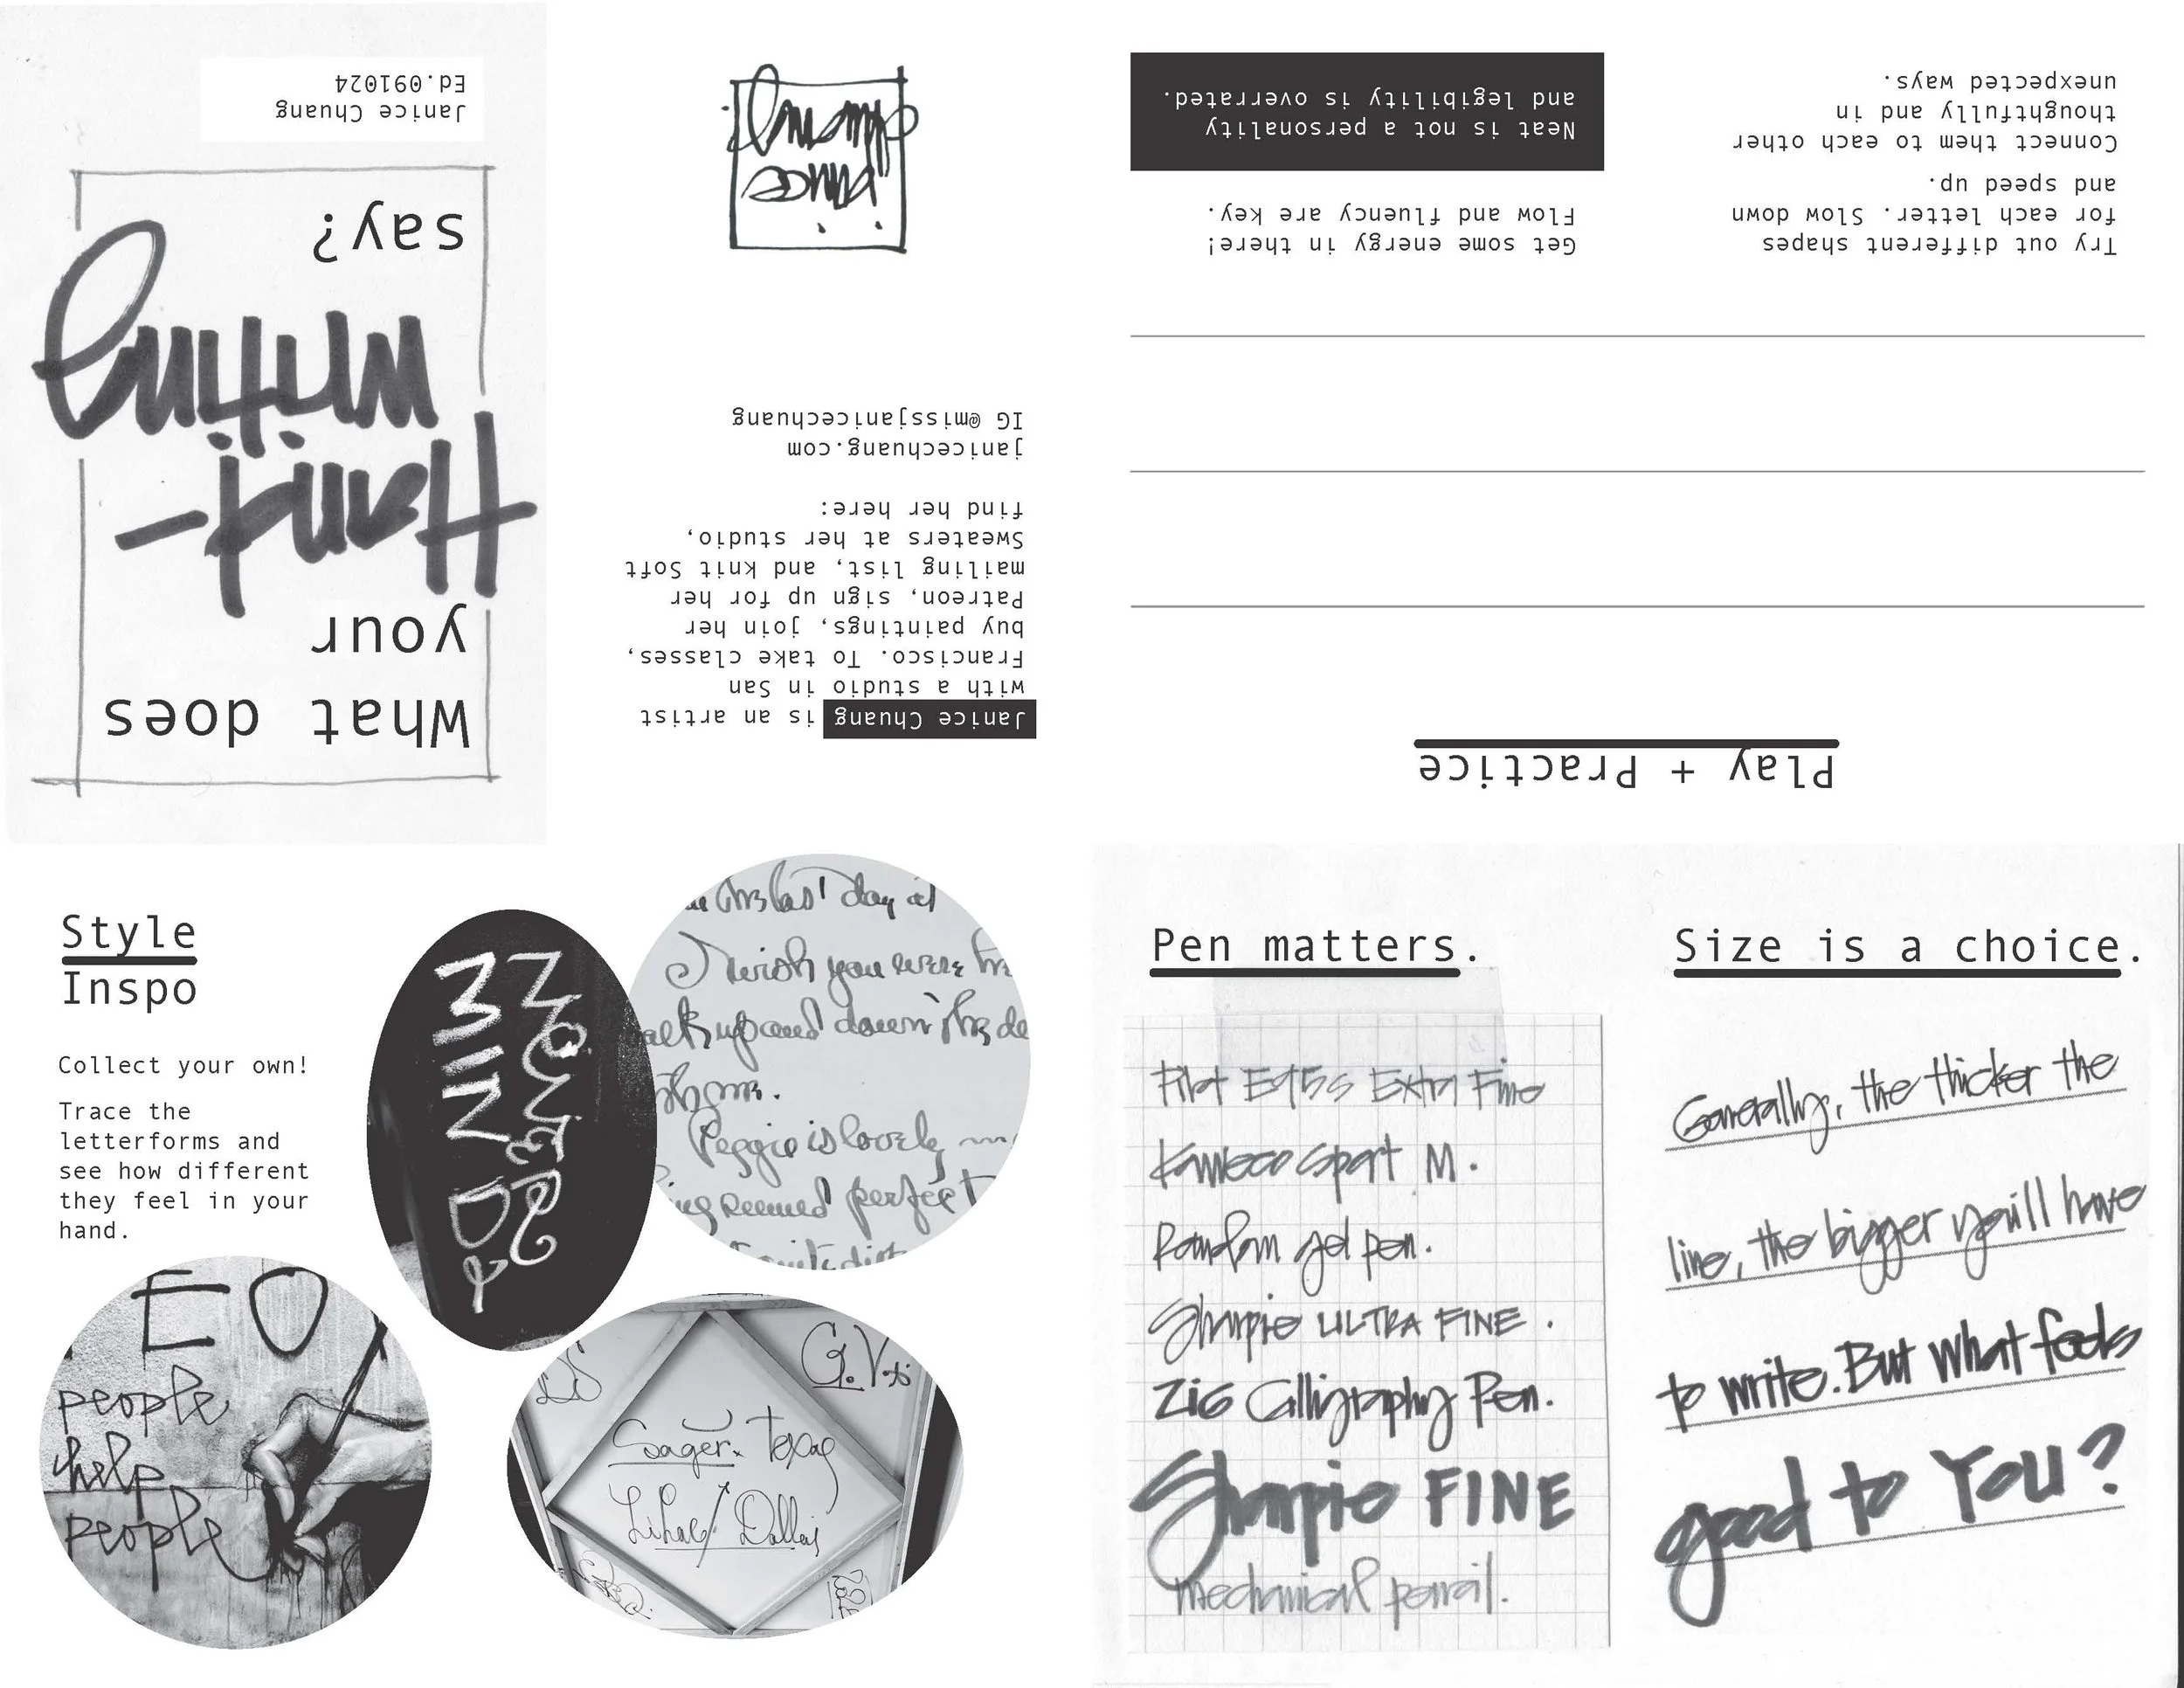 What does
your
Hand-
writing
say?
Janice Chuang
Ed.091024
Style
Inspo
Collect your own!
Trace the
letterforms and
see how different
they feel in your
hand.
day at
I wish you were
up and down
Peggie is lovely
seemed perfect
NEVER
MIND
EO
people
help
people
G.V.
Texas
Dallas
Pen matters.
Pilot Extra Fine
Kaweco Sport M.
Random gel pen.
Sharpie ULTRA FINE.
ZIG Calligraphy Pen.
Sharpie FINE
mechanical pencil.
Size is a choice.
Generally, the thicker the
line, the bigger you'll have
to write. But what feels
good to You?
Play + Practice
Try out different shapes
for each letter. Slow down
and speed up.
Connect them to each other
thoughtfully and in
unexpected ways.
Get some energy in there!
Flow and fluency are key.
Neat is not a personality
and legibility is overrated.
Janice Chuang is an artist
with a studio in San
Francisco. To take classes,
buy paintings, join her
Patreon, sign up for her
mailing list, and knit Soft
Sweaters at her studio,
find her here:
janicechuang.com
IG @missjanicechuang
janice
chuang